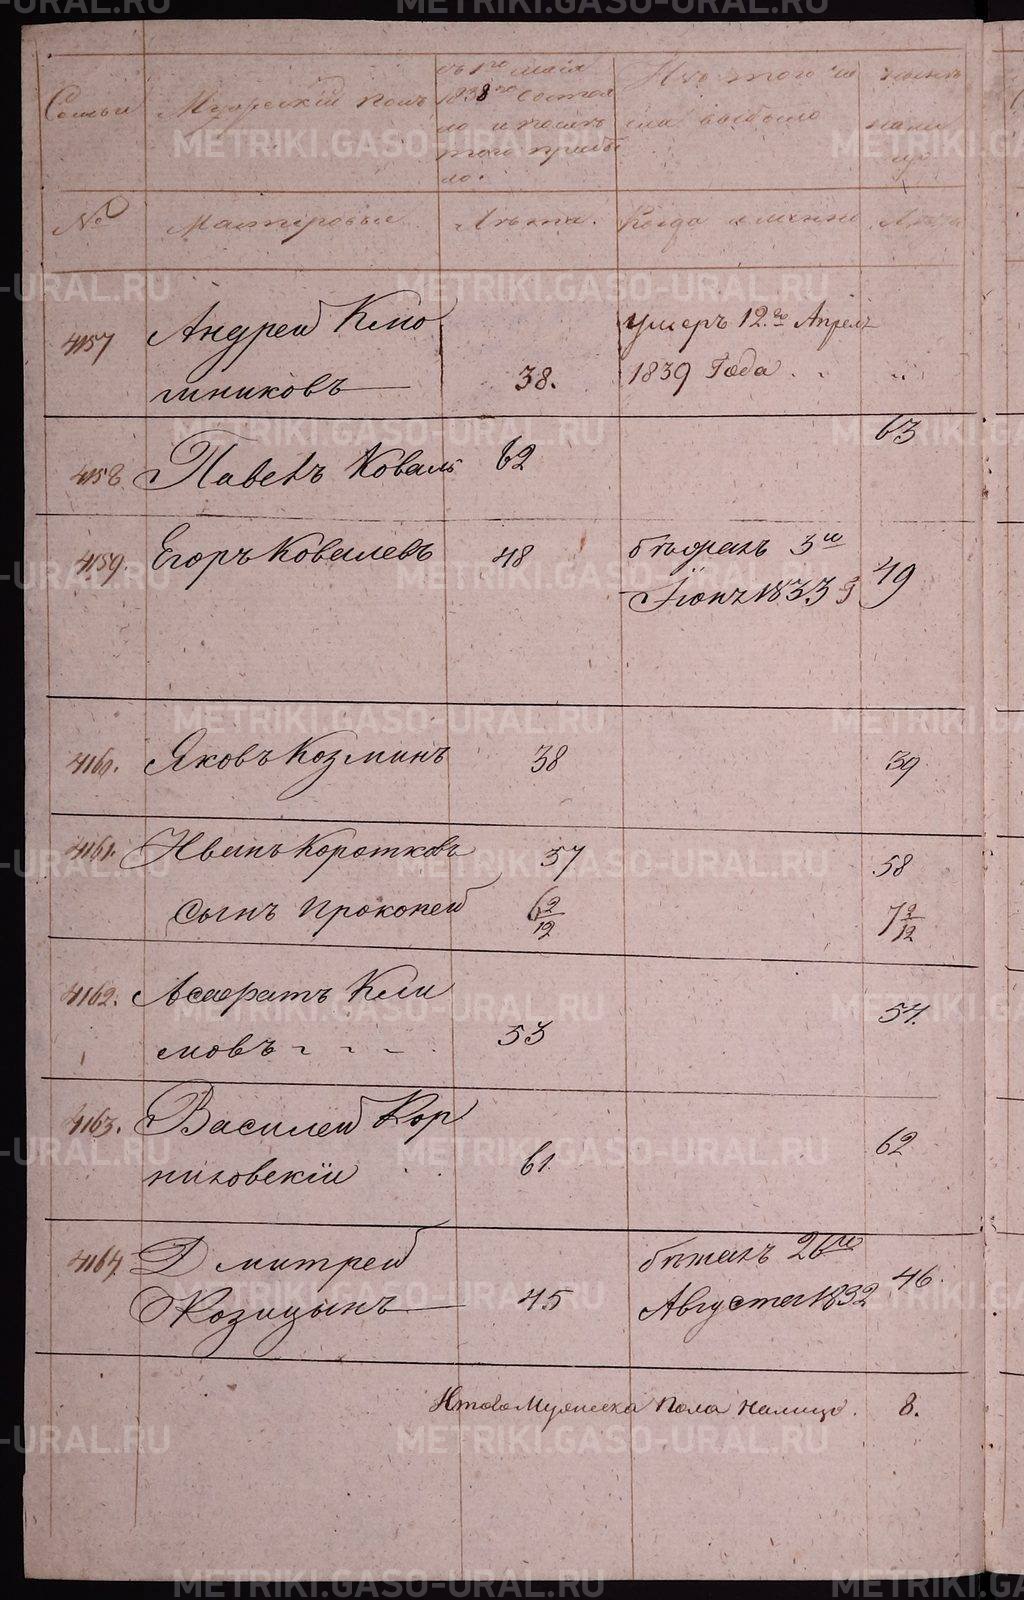 Семьи
Мужеский полъ
съ 1го маія
1838 го состоя
ло и послѣ
того прибы
ло.
Изъ того чи
сла выбыло
нынѣ
на ли
цо
№
Мастеровые
Лѣта.
Когда именно
Лѣта
4157 Андрей Кло
пниковъ 38. умеръ 12.го Апрелѣ
1839 Года
4158. Павелъ Коваль 62 63
4159. Егоръ Ковалевъ 48 бѣжалъ 3го
Іюнѣ 1833 Г 49
4160. Яковъ Козминъ 38 39
4161. Иванъ Коротковъ 57 58
Сынъ Прокопей 6 9/12 7 9/12
4162. Асафатъ Кли
мовъ 53 54.
4163. Василей Кор
ниловскiи 61. 62
4164. Дмитрей
Козицынъ 45 бѣжалъ 26го
Августа 1832 46.
Итого Мужеска Пола налицо. 8.
METRIKI.GASO-URAL.RU